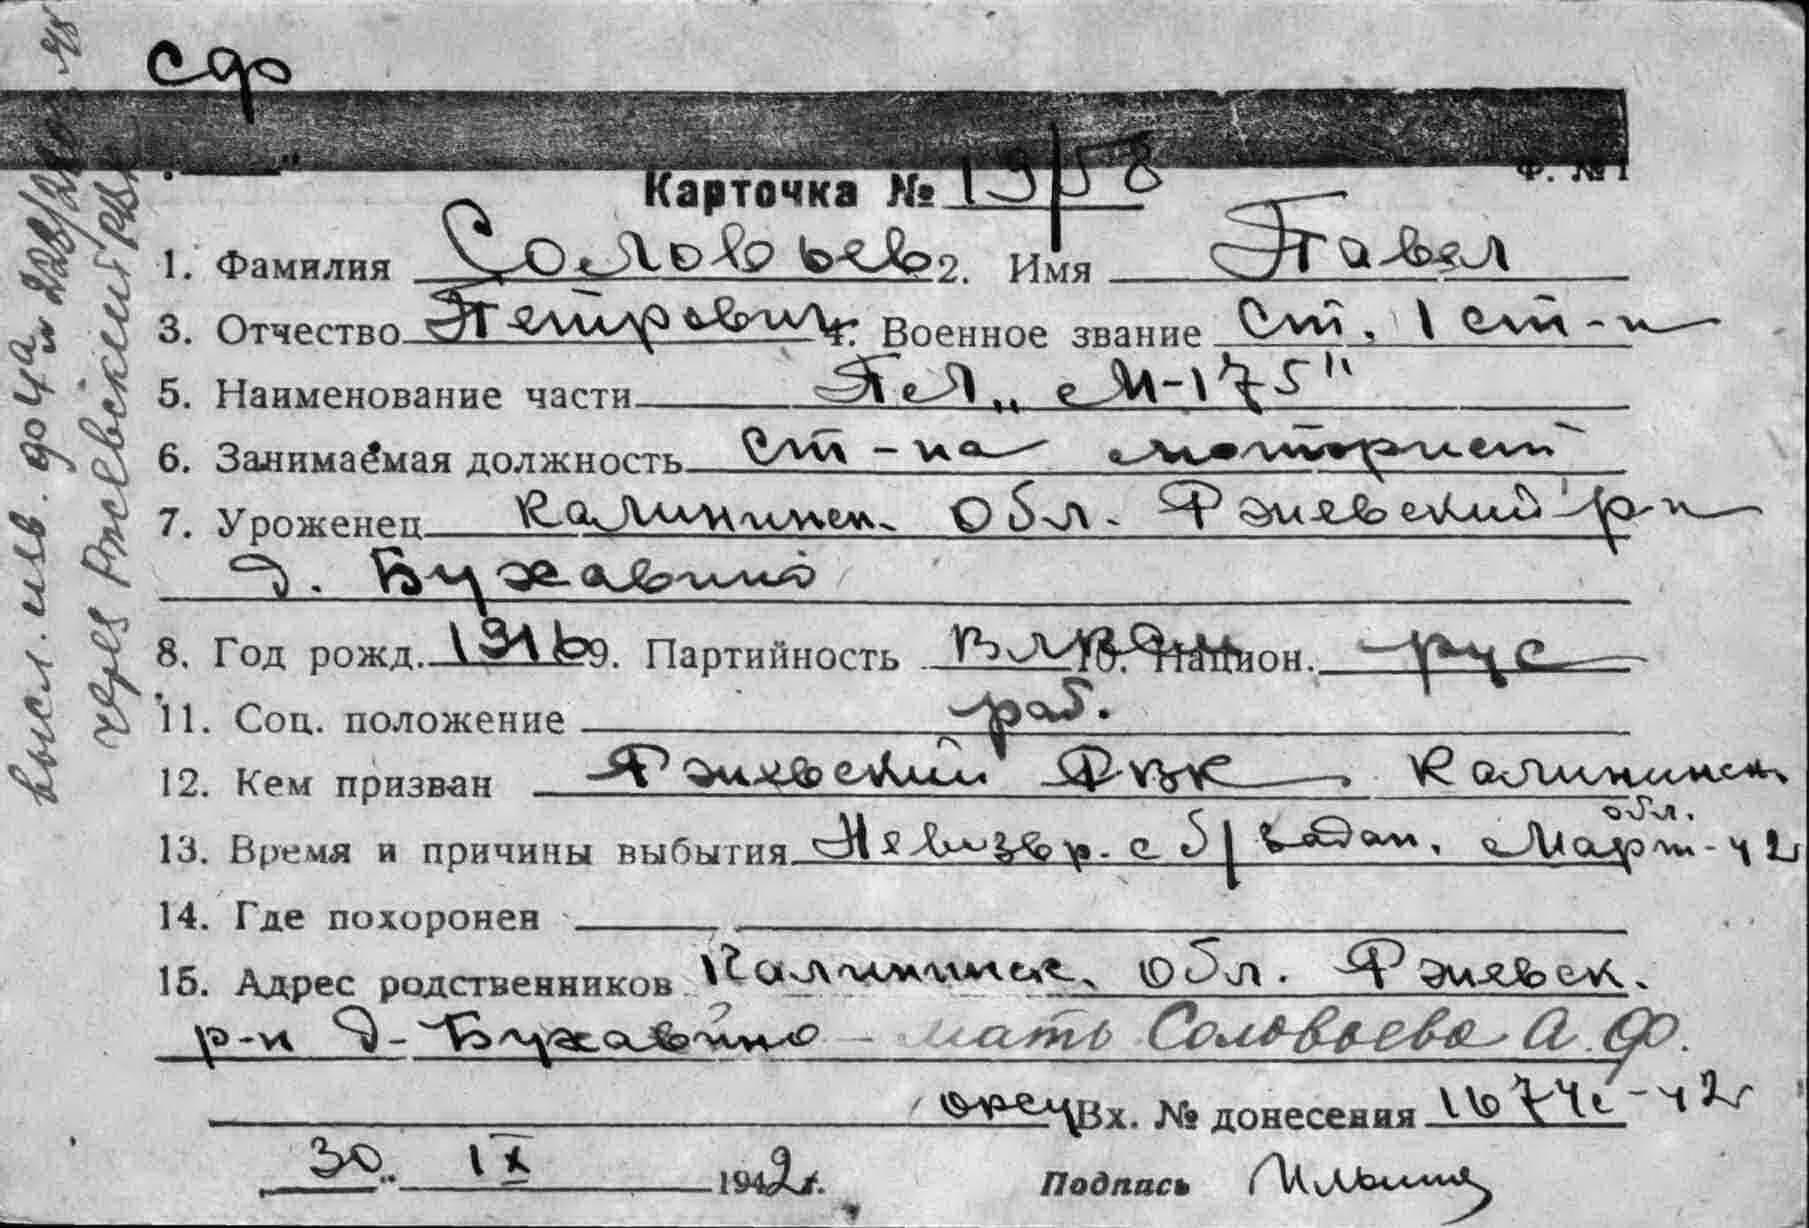 сф
Ф. №1
Карточка № 19/58
1. Фамилия Соловьев 2. Имя Павел
3. Отчество Петрович 4. Военное звание ст. 1 ст-и
5. Наименование части ПЛ „М-175"
6. Занимаемая должность ст-на моторист
7. Уроженец Калининск. обл. Ржевский р-н
д. Бухавино
8. Год рожд. 1916 9. Партийность 10. Национ. рус
11. Соц. положение раб.
12. Кем призван Ржевский РВК Калининск.
обл.
13. Время и причины выбытия Невозвр. с б/задан. Март-42г
14. Где похоронен
15. Адрес родственников Калининск. обл. Ржевск.
р-н д-Бухавино - мать Соловьева А.Ф.
Вх. № донесения 1674с-42г
30 IX 1942г. Подпись
высл. изв.
через Ржевский РВК